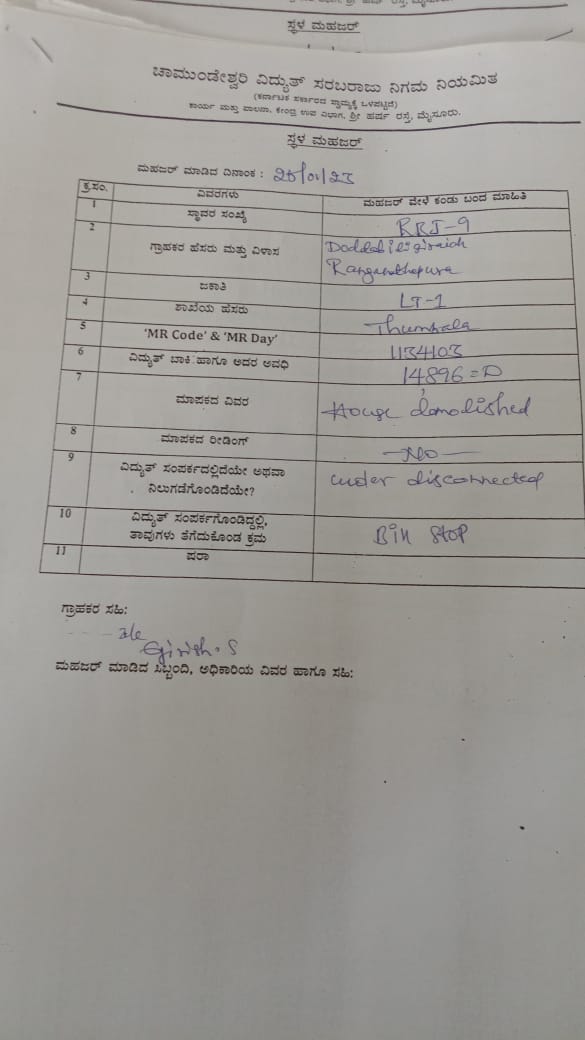 ಸ್ಥಳ ಮಹಜರ್
ಚಾಮುಂಡೇಶ್ವರಿ ವಿದ್ಯುತ್ ಸರಬರಾಜು ನಿಗಮ ನಿಯಮಿತ
(ಕರ್ನಾಟಕ ಸರ್ಕಾರದ ಸ್ವಾಮ್ಯಕ್ಕೆ ಒಳಪಟ್ಟಿದೆ)
ಕಾರ್ಯ ಮತ್ತು ಪಾಲನಾ, ಕೇಂದ್ರ ಉಪ ವಿಭಾಗ, ಶ್ರೀ ಹರ್ಷ ರಸ್ತೆ, ಮೈಸೂರು.
ಸ್ಥಳ ಮಹಜರ್
ಮಹಜರ್ ಮಾಡಿದ ದಿನಾಂಕ : 25/01/23
ಕ್ರ.ಸಂ. ವಿವರಗಳು ಮಹಜರ್ ವೇಳೆ ಕಂಡು ಬಂದ ಮಾಹಿತಿ
1 ಸ್ಥಾವರ ಸಂಖ್ಯೆ RRJ-9
2 ಗ್ರಾಹಕರ ಹೆಸರು ಮತ್ತು ವಿಳಾಸ
3 ಜಕಾತಿ LT-1
4 ಶಾಖೆಯ ಹೆಸರು
5 'MR Code' & 'MR Day' 1134103
6 ವಿದ್ಯುತ್ ಬಾಕಿ ಹಾಗೂ ಅದರ ಅವಧಿ 14896=0
7 ಮಾಪಕದ ವಿವರ House demolished
8 ಮಾಪಕದ ರೀಡಿಂಗ್ — No —
9 ವಿದ್ಯುತ್ ಸಂಪರ್ಕದಲ್ಲಿದೆಯೇ ಅಥವಾ under disconnected
ನಿಲುಗಡೆಗೊಂಡಿದೆಯೇ?
10 ವಿದ್ಯುತ್ ಸಂಪರ್ಕಗೊಂಡಿದ್ದಲ್ಲಿ, Bill Stop
ತಾವುಗಳು ತೆಗೆದುಕೊಂಡ ಕ್ರಮ
11 ಷರಾ
ಗ್ರಾಹಕರ ಸಹಿ:
Girish.S
ಮಹಜರ್ ಮಾಡಿದ ಸಿಬ್ಬಂದಿ, ಅಧಿಕಾರಿಯ ವಿವರ ಹಾಗೂ ಸಹಿ: